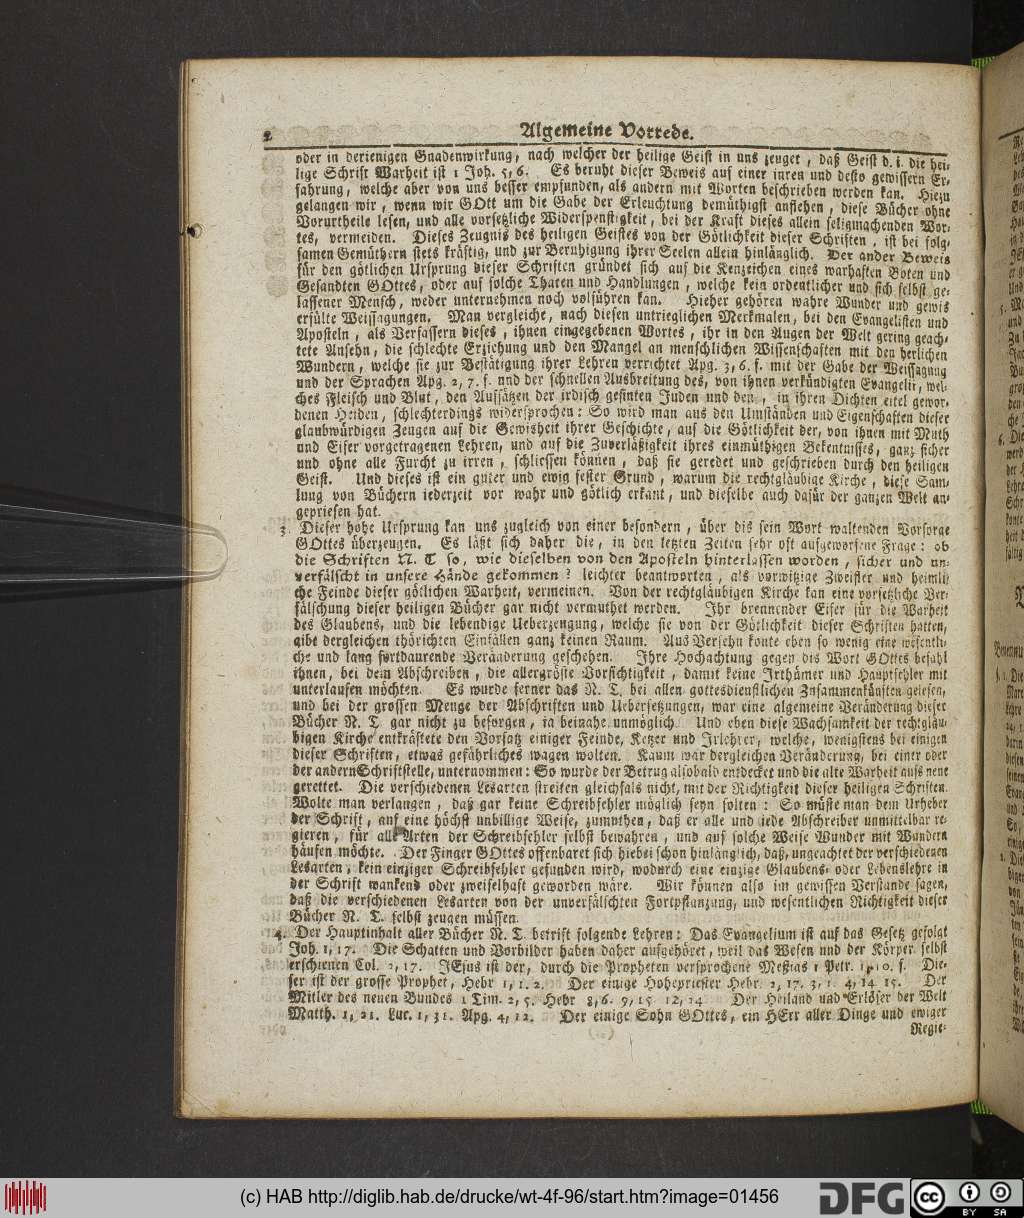 2 Algemeine Vorrede.
oder in derienigen Gnadenwirkung, nach welcher der heilige Geist in uns zeuget, daß Geist d. i. die hei-
lige Schrift Warheit ist 1 Joh. 5, 6. Es beruht dieser Beweis auf einer inren und desto gewissern Er-
fahrung, welche aber von uns besser empfunden, als andern mit Worten beschrieben werden kan. Hiezu
gelangen wir, wenn wir GOtt um die Gabe der Erleuchtung demüthigst anflehen, diese Bücher ohne
Vorurtheile lesen, und alle vorsetzliche Widerspenstigkeit, bei der Kraft dieses allein seligmachenden Wor-
tes, vermeiden. Dieses Zeugnis des heiligen Geistes von der Götlichkeit dieser Schriften, ist bei folg-
samen Gemüthern stets kräftig, und zur Beruhigung ihrer Seelen allein hinlänglich. Der ander Beweis
für den götlichen Ursprung dieser Schriften gründet sich auf die Kenzeichen eines warhaften Boten und
Gesandten GOttes, oder auf solche Thaten und Handlungen, welche kein ordentlicher und sich selbst ge-
lassener Mensch, weder unternehmen noch volführen kan. Hieher gehören wahre Wunder und gewis
erfülte Weissagungen. Man vergleiche, nach diesen untrieglichen Merkmalen, bei den Evangelisten und
Aposteln, als Verfassern dieses, ihnen eingegebenen Wortes, ihr in den Augen der Welt gering geach-
tete Ansehn, die schlechte Erziehung und den Mangel an menschlichen Wissenschaften mit den herlichen
Wundern, welche sie zur Bestätigung ihrer Lehren verrichtet Apg. 3, 6. f. mit der Gabe der Weissagung
und der Sprachen Apg. 2, 7. f. und der schnellen Ausbreitung des, von ihnen verkündigten Evangelii, wel-
ches Fleisch und Blut, den Aufsätzen der irdisch gesinten Juden und den, in ihren Dichten eitel gewor-
denen Heiden, schlechterdings widersprochen: So wird man aus den Umständen und Eigenschaften dieser
glaubwürdigen Zeugen auf die Gewisheit ihrer Geschichte, auf die Götlichkeit der, von ihnen mit Muth
und Eifer vorgetragenen Lehren, und auf die Zuverläßigkeit ihres einmüthigen Bekentnisses, ganz sicher
und ohne alle Furcht zu irren, schliessen können, daß sie geredet und geschrieben durch den heiligen
Geist. Und dieses ist ein guter und ewig fester Grund, warum die rechtgläubige Kirche, diese Sam-
lung von Büchern iederzeit vor wahr und götlich erkant, und dieselbe auch dafür der ganzen Welt an-
gepriesen hat.
3. Dieser hohe Ursprung kan uns zugleich von einer besondern, über dis sein Wort waltenden Vorsorge
GOttes überzeugen. Es läßt sich daher die, in den letzten Zeiten sehr oft aufgeworfene Frage: ob
die Schriften N. T. so, wie dieselben von den Aposteln hinterlassen worden, sicher und un-
verfälscht in unsere Hände gekommen? leichter beantworten, als vorwitzige Zweifler und heimli-
che Feinde dieser götlichen Warheit, vermeinen. Von der rechtgläubigen Kirche kan eine vorsetzliche Ver-
fälschung dieser heiligen Bücher gar nicht vermuthet werden. Ihr brennender Eifer für die Warheit
des Glaubens, und die lebendige Ueberzeugung, welche sie von der Götlichkeit dieser Schriften hatten,
gibt dergleichen thörichten Einfällen ganz keinen Raum. Aus Versehn konte eben so wenig eine wesentli-
che und lang fortdaurende Veränderung geschehen. Ihre Hochachtung gegen dis Wort GOttes befahl
ihnen, bei dem Abschreiben, die allergröste Vorsichtigkeit, damit keine Irthümer und Hauptfehler mit
unterlaufen möchten. Es wurde ferner das N. T. bei allen gottesdienstlichen Zusammenkünften gelesen,
und bei der grossen Menge der Abschriften und Uebersetzungen, war eine algemeine Veränderung dieser
Bücher N. T. gar nicht zu besorgen, ia beinahe unmöglich. Und eben diese Wachsamkeit der rechtgläu-
bigen Kirche entkräftete den Vorsatz einiger Feinde, Ketzer und Irlehrer, welche, wenigstens bei einigen
dieser Schriften, etwas gefährliches wagen wolten. Kaum war dergleichen Veränderung, bei einer oder
der andern Schriftstelle, unternommen: So wurde der Betrug alsobald entdecket und die alte Warheit aufs neue
gerettet. Die verschiedenen Lesarten streiten gleichfals nicht, mit der Richtigkeit dieser heiligen Schriften.
Wolte man verlangen, daß gar keine Schreibfehler möglich seyn solten: So müste man dem Urheber
der Schrift, auf eine höchst unbillige Weise, zumuthen, daß er alle und iede Abschreiber unmittelbar re-
gieren, für alle Arten der Schreibfehler selbst bewahren, und auf solche Weise Wunder mit Wundern
häufen möchte. Der Finger GOttes offenbaret sich hiebei schon hinlänglich, daß, ungeachtet der verschiedenen
Lesarten, kein einziger Schreibfehler gefunden wird, wodurch eine einzige Glaubens- oder Lebenslehre in
der Schrift wankend oder zweifelhaft geworden wäre. Wir können also im gewissen Verstande sagen,
daß die verschiedenen Lesarten von der unverfälschten Fortpflanzung, und wesentlichen Richtigkeit dieser
Bücher N. T. selbst zeugen müssen.
4. Der Hauptinhalt aller Bücher N. T. betrift folgende Lehren: Das Evangelium ist auf das Gesetz gefolgt
Joh. 1, 17. Die Schatten und Vorbilder haben daher aufgehöret, weil das Wesen und der Körper selbst
erschienen Col. 2, 17. JEsus ist der, durch die Propheten versprochene Meßias 1 Petr. 1, 10. f. Die-
ser ist der grosse Prophet, Hebr 1, 1. 2. Der einige Hohepriester Hebr. 2, 17. 3, 1. 4, 14 15. Der
Mitler des neuen Bundes 1 Tim. 2, 5. Hebr 8, 6. 9, 15 12, 24 Der Heiland und Erlöser der Welt
Matth. 1, 21. Luc. 1, 31. Apg. 4, 12. Der einige Sohn GOttes, ein HErr aller Dinge und ewiger
Regie-
(c) HAB http://diglib.hab.de/drucke/wt-4f-96/start.htm?image=01456
DFG
cc BY SA